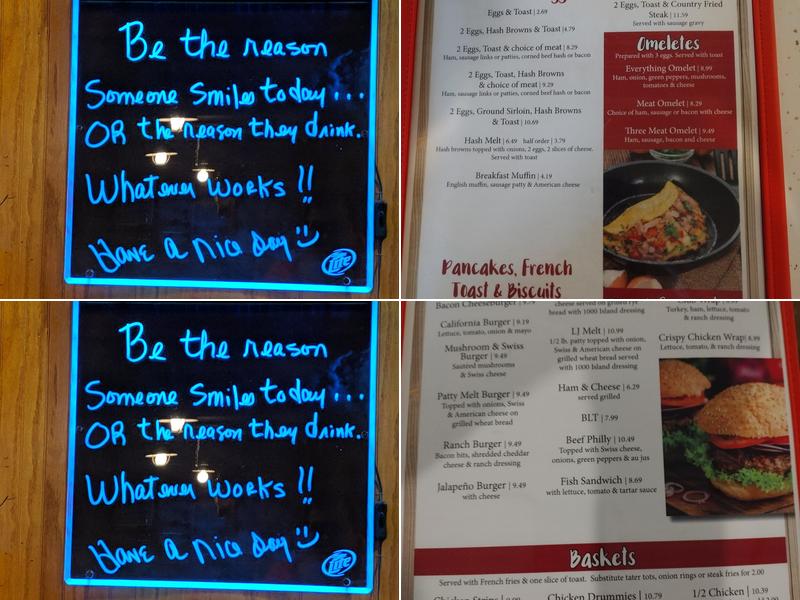 Be the reason
Someone Smiles today...
OR the reason they drink.
Whatever Works !!
Have a nice Day
Lite
Eggs & Toast | 2.69
2 Eggs, Hash Browns & Toast | 4.79
2 Eggs, Toast & choice of meat | 8.29
Ham, sausage links or patties, corned beef hash or bacon
2 Eggs, Toast, Hash Browns
& choice of meat | 9.29
Ham, sausage links or patties, corned beef hash or bacon
2 Eggs, Ground Sirloin, Hash Browns
& Toast | 10.69
Hash Melt | 6.49 half order | 3.79
Hash browns topped with onions, 2 eggs, 2 slices of cheese.
Served with toast
Breakfast Muffin | 4.19
English muffin, sausage patty & American cheese
Pancakes, French
Toast & Biscuits
2 Eggs, Toast & Country Fried
Steak | 11.59
Served with sausage gravy
Omeletes
Prepared with 3 eggs. Served with toast
Everything Omelet | 8.99
Ham, onion, green peppers, mushrooms,
tomatoes & cheese
Meat Omelet | 8.29
Choice of ham, sausage or bacon with cheese
Three Meat Omelet | 9.49
Ham, sausage, bacon and cheese
Be the reason
Someone Smiles today...
OR the reason they drink.
Whatever Works !!
Have a nice Day
Lite
Bacon Cheeseburger
California Burger | 9.19
Lettuce, tomato, onion & mayo
Mushroom & Swiss
Burger | 9.49
Sauteed mushrooms
& Swiss cheese
Patty Melt Burger | 9.49
Topped with onions, Swiss
& American cheese on
grilled wheat bread
Ranch Burger | 9.49
Bacon bits, shredded cheddar
cheese & ranch dressing
Jalapeño Burger | 9.49
with cheese
cheese served on grilled rye
bread with 1000 Island dressing
LJ Melt | 10.99
1/2 lb. patty topped with onion,
Swiss & American cheese on
grilled wheat bread served
with 1000 Island dressing
Ham & Cheese | 6.29
served grilled
BLT | 7.99
Beef Philly | 10.49
Topped with Swiss cheese,
onions, green peppers & au jus
Fish Sandwich | 8.69
with lettuce, tomato & tartar sauce
Turkey, ham, lettuce, tomato
& ranch dressing
Crispy Chicken Wrap | 8.99
Lettuce, tomato, & ranch dressing
Baskets
Served with French fries & one slice of toast. Substitute tater tots, onion rings or steak fries for 2.00
Chicken Strips
Chicken Drummies | 10.79
1/2 Chicken | 10.39